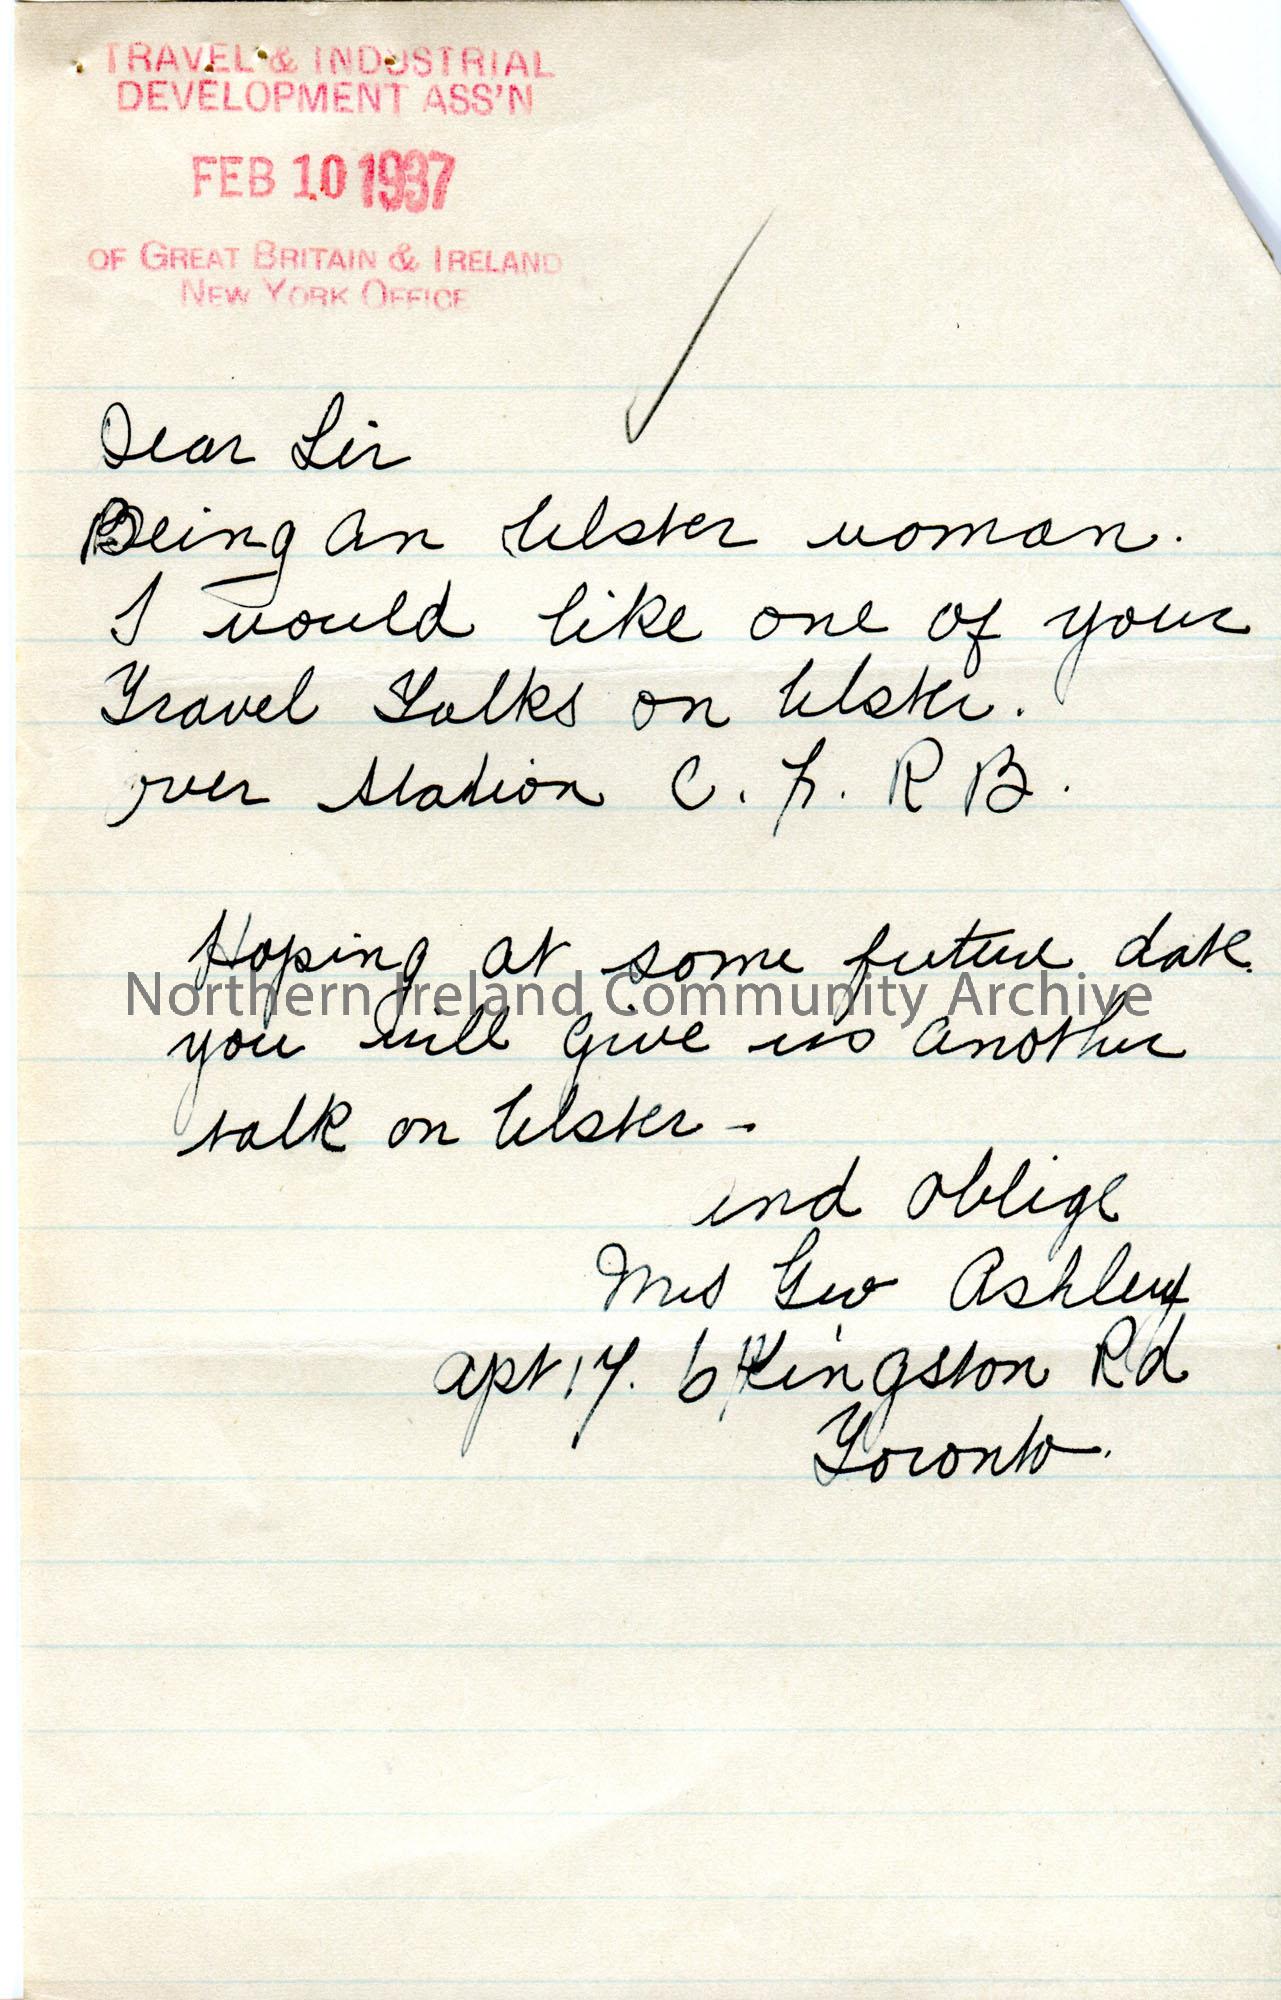 TRAVEL & INDUSTRIAL
DEVELOPMENT ASS'N
FEB 10 1937
OF GREAT BRITAIN & IRELAND
NEW YORK OFFICE
Dear Sir
Being an Ulster woman.
I would like one of your
Travel Talks on Ulster.
over station C. F. R B.
Hoping at some future date.
Northern Ireland Community Archive
you will give us another
talk on Ulster -
and oblige
Mrs Geo Ashley
apt 17. Kingston Rd
Toronto.